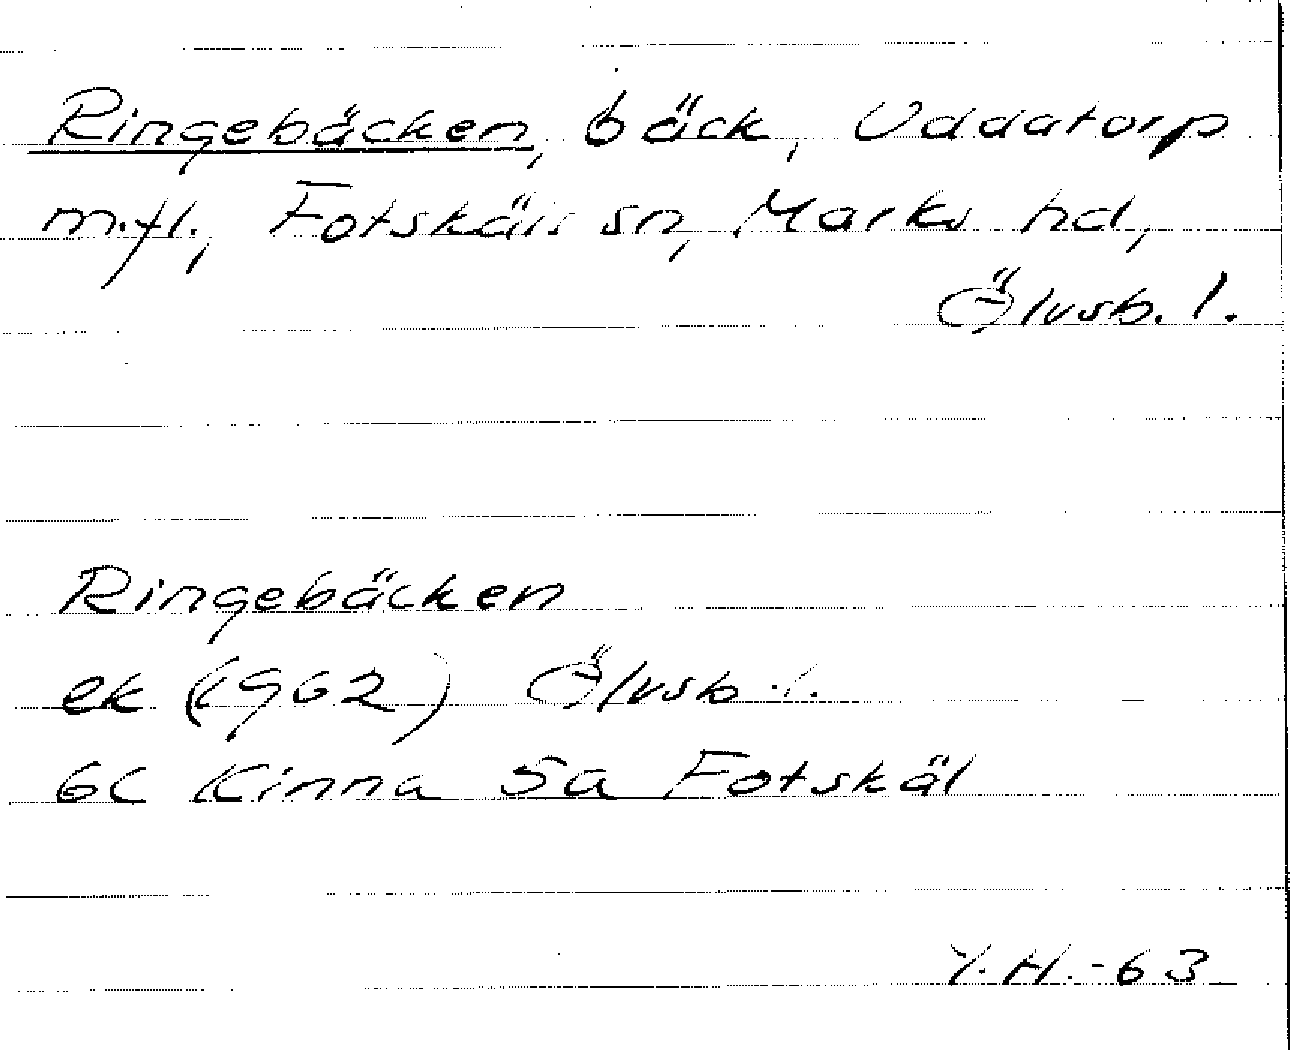 Ringebäcken, bäck, Uddatorp
m.fl., Fotskäls sn, Marks hd,
Älvsb. l.
Ringebäcken
ek (1962) Älvsb. l.
6C Kinna 5a Fotskäl
Y.H.-63